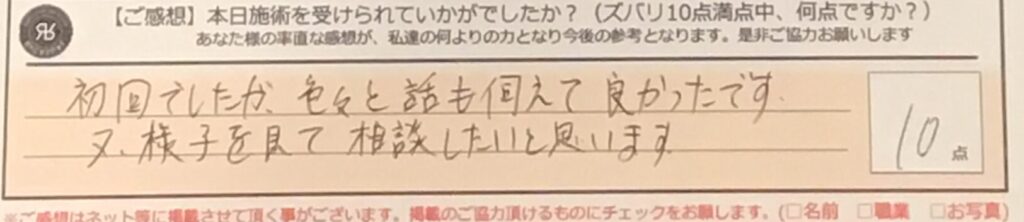 【ご感想】本日施術を受けられていかがでしたか？（ズバリ10点満点中、何点ですか？）
あなた様の率直な感想が、私達の何よりの力となり今後の参考となります。是非ご協力お願いします
初回でしたが、色々と話も伺えて良かったです。
又、様子を見て相談したいと思います
10点
※ご感想はネット等に掲載させて頂く事がございます。掲載のご協力頂けるものにチェックをお願します。(□名前 □職業 □お写真)